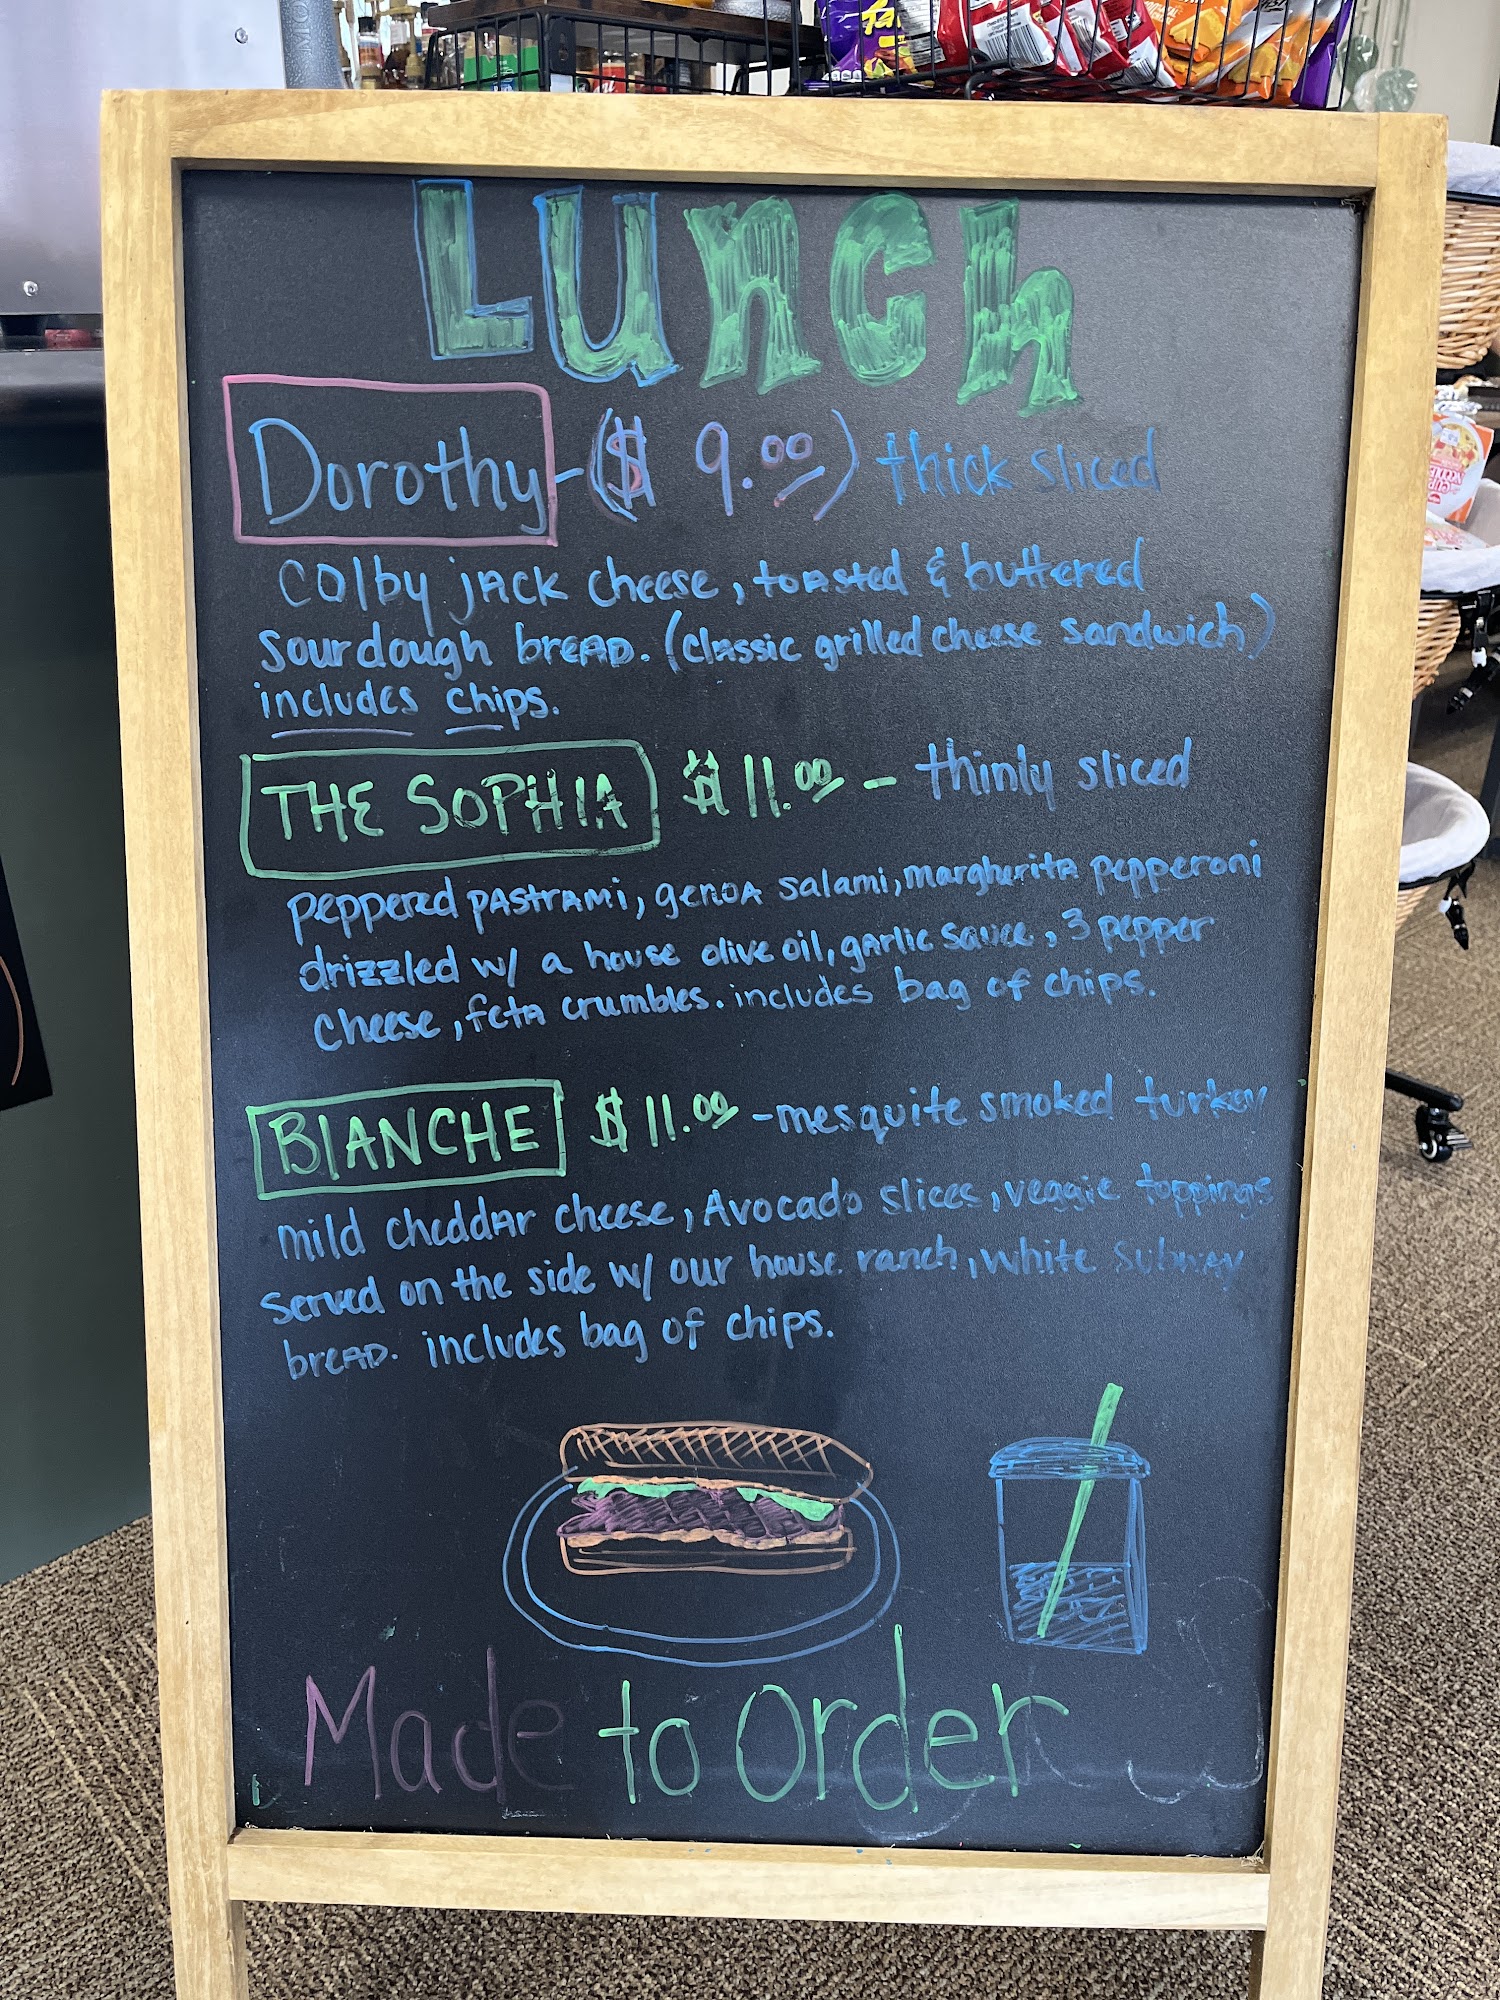 Lunch
Dorothy - ($ 9.00) thick sliced
colby jack cheese, toasted & buttered
sourdough bread. (classic grilled cheese sandwich)
includes chips.
THE SOPHIA $ 11.00 - thinly sliced
peppered pastrami, genoa salami, margherita pepperoni
drizzled w/ a house olive oil, garlic sauce, 3 pepper
cheese, feta crumbles. includes bag of chips.
BlANCHE $ 11.00 - mesquite smoked turkey
mild cheddar cheese, Avocado slices, veggie toppings
served on the side w/ our house ranch, white subway
bread. includes bag of chips.
Made to Order